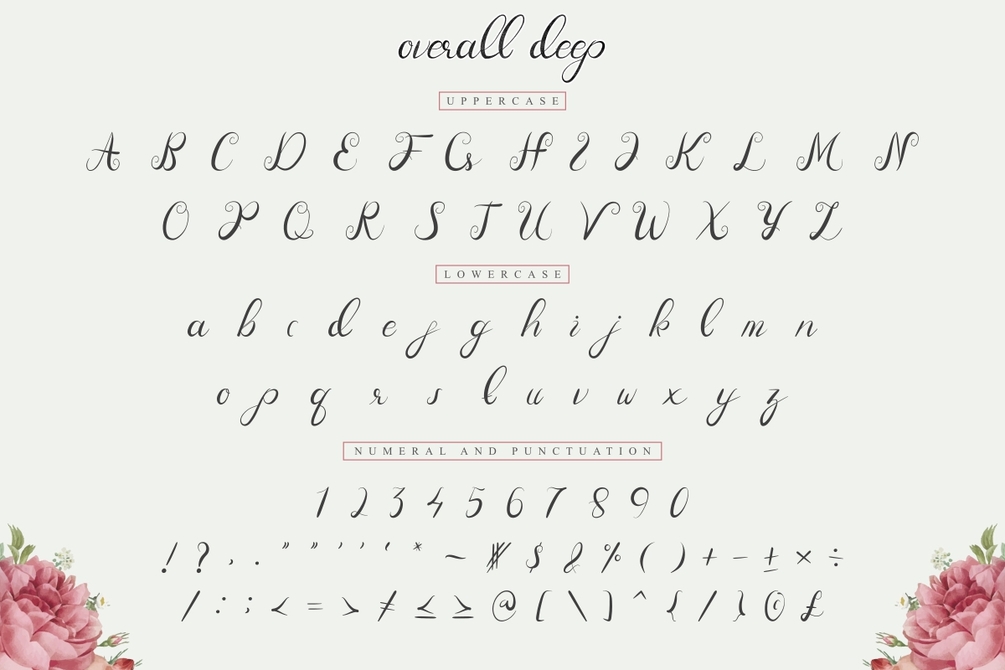 overall deep
UPPERCASE
A B C D E F G H I J K L M N
O P Q R S T U V W X Y Z
LOWERCASE
a b c d e f g h i j k l m n
o p q r s t u v w x y z
NUMERAL AND PUNCTUATION
1 2 3 4 5 6 7 8 9 0
! ? , . " " ' ' ‘ * ~ # $ & % ( ) + − ± × ÷
/ : ; < = > ≠ ≤ ≥ @ [ \ ] ^ { / } © £